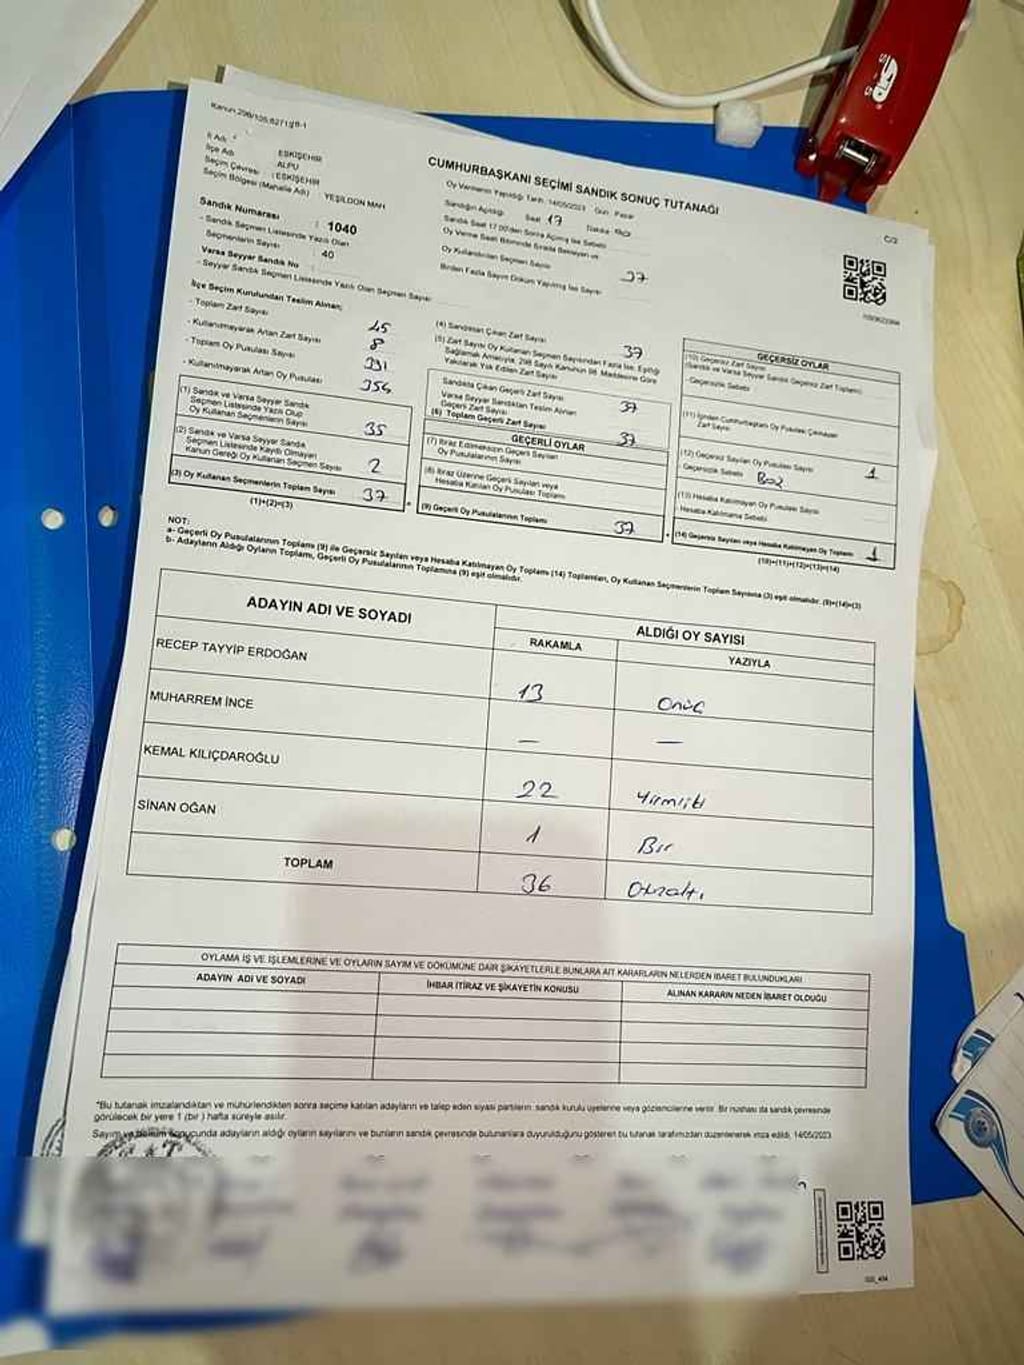 Kanun.298/105;6271;g8-1
İl Adı : ESKİŞEHİR
İlçe Adı : ALPU
Seçim Çevresi : ESKİŞEHİR
Seçim Bölgesi (Mahalle Adı) YEŞİLDON MAH
Sandık Numarası : 1040
- Sandık Seçmen Listesinde Yazılı Olan
Seçmenlerin Sayısı : 40
Varsa Seyyar Sandık No :
- Seyyar Sandık Seçmen Listesinde Yazılı Olan Seçmen Sayısı
CUMHURBAŞKANI SEÇİMİ SANDIK SONUÇ TUTANAĞI
Oy Vermenin Yapıldığı Tarih: 14/05/2023 Gün : Pazar
Sandığın Açıldığı Saat 17 Dakika
Sandık Saat 17.00'den Sonra Açılmış İse Sebebi
Oy Verme Saati Bitiminde Sırada Bekleyen ve
Oy Kullandırılan Seçmen Sayısı
Birden Fazla Sayım Döküm Yapılmış İse Sayısı
37
C/2
İlçe Seçim Kurulundan Teslim Alınan;
- Toplam Zarf Sayısı 45
- Kullanılmayarak Artan Zarf Sayısı 8
- Toplam Oy Pusulası Sayısı 391
- Kullanılmayarak Artan Oy Pusulası 354
(1) Sandık ve Varsa Seyyar Sandık
Seçmen Listesinde Yazılı Olup
Oy Kullanan Seçmenlerin Sayısı 35
(2) Sandık ve Varsa Seyyar Sandık
Seçmen Listesinde Kayıtlı Olmayan
Kanun Gereği Oy Kullanan Seçmen Sayısı 2
(3) Oy Kullanan Seçmenlerin Toplam Sayısı 37
(1)+(2)=(3)
(4) Sandıktan Çıkan Zarf Sayısı 37
(5) Zarf Sayısı Oy Kullanan Seçmen Sayısından Fazla İse, Eşitliği
Sağlamak Amacıyla, 298 Sayılı Kanunun 98. Maddesine Göre
Yakılarak Yok Edilen Zarf Sayısı
Sandıkta Çıkan Geçerli Zarf Sayısı 37
Varsa Seyyar Sandıktan Teslim Alınan
Geçerli Zarf Sayısı
(6) Toplam Geçerli Zarf Sayısı 37
GEÇERLİ OYLAR
(7) İtiraz Edilmeksizin Geçerli Sayılan
Oy Pusulalarının Sayısı
(8) İtiraz Üzerine Geçerli Sayılan veya
Hesaba Katılan Oy Pusulası Toplamı
(9) Geçerli Oy Pusulalarının Toplamı 37
GEÇERSİZ OYLAR
(10) Geçersiz Zarf Sayısı
(Sandık ve Varsa Seyyar Sandık Geçersiz Zarf Toplamı)
- Geçersizlik Sebebi
(11) İçinden Cumhurbaşkanı Oy Pusulası Çıkmayan
Zarf Sayısı
(12) Geçersiz Sayılan Oy Pusulası Sayısı 1
- Geçersizlik Sebebi
(13) Hesaba Katılmayan Oy Pusulası Sayısı
- Hesaba Katılmama Sebebi
(14) Geçersiz Sayılan veya Hesaba Katılmayan Oy Toplamı 1
(10)+(11)+(12)+(13)=(14)
NOT:
a- Geçerli Oy Pusulalarının Toplamı (9) ile Geçersiz Sayılan veya Hesaba Katılmayan Oy Toplamı (14) Toplamları, Oy Kullanan Seçmenlerin Toplam Sayısına (3) eşit olmalıdır. (9)+(14)=(3)
b- Adayların Aldığı Oyların Toplamı, Geçerli Oy Pusulalarının Toplamına (9) eşit olmalıdır.
ADAYIN ADI VE SOYADI
ALDIĞI OY SAYISI
RAKAMLA YAZIYLA
RECEP TAYYİP ERDOĞAN 13 Onüç
MUHARREM İNCE — —
KEMAL KILIÇDAROĞLU 22 Yirmiiki
SİNAN OĞAN 1 Bir
TOPLAM 36 Otuzaltı
OYLAMA İŞ VE İŞLEMLERİNE VE OYLARIN SAYIM VE DÖKÜMÜNE DAİR ŞİKAYETLERLE BUNLARA AİT KARARLARIN NELERDEN İBARET BULUNDUKLARI
ADAYIN ADI VE SOYADI
İHBAR İTİRAZ VE ŞİKAYETİN KONUSU
ALINAN KARARIN NEDEN İBARET OLDUĞU
*Bu tutanak imzalandıktan ve mühürlendikten sonra seçime katılan adayların ve talep eden siyasi partilerin sandık kurulu üyelerine veya gözlemcilerine verilir. Bir nüshası da sandık çevresinde
görülecek bir yere 1 (bir ) hafta süreyle asılır.
Sayım ve döküm sonucunda adayların aldığı oyların sayılarını ve bunların sandık çevresinde bulunanlara duyurulduğunu gösteren bu tutanak tarafımızdan düzenlenerek imza edildi. 14/05/2023